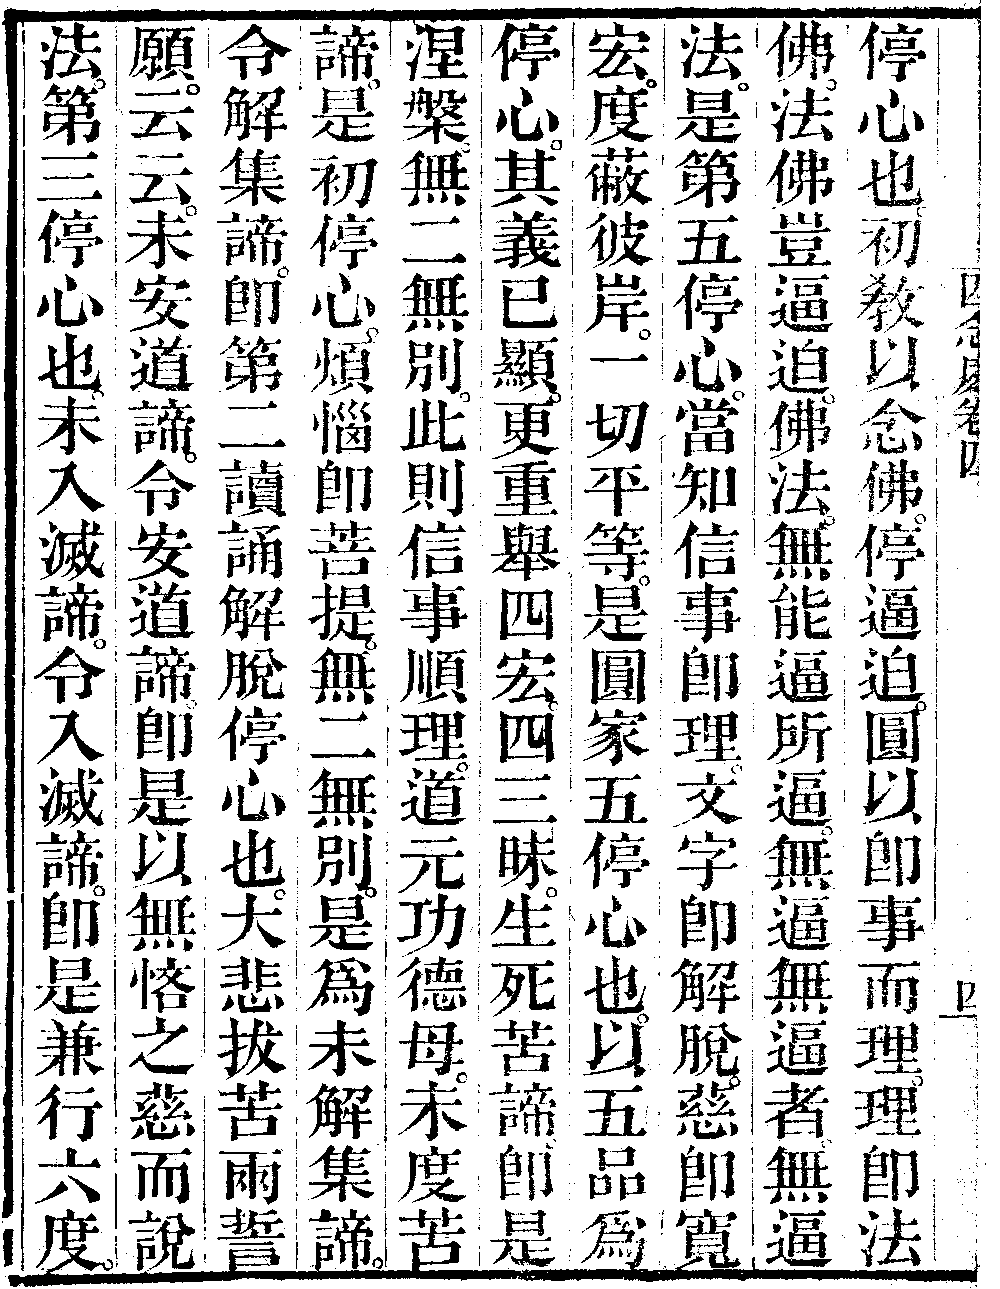 四念處卷四
四
停心也初敎以念佛。停逼迫。圓以卽事而理。理卽法
佛。法佛豈逼迫。佛法。無能逼所逼。無逼無逼者。無逼
法。是第五停心。當知信事卽理。文字卽解脫。慈卽寬
宏。度蔽彼岸。一切平等。是圓家五停心也。以五品爲
停心。其義已顯。更重舉四宏。四三昧。生死苦諦。卽是
涅槃。無二無別。此則信事順理。道元功德母。未度苦
諦。是初停心。煩惱卽菩提。無二無別。是爲未解集諦。
令解集諦。卽第二讀誦解脫停心也。大悲拔苦兩誓
願。云云。未安道諦。令安道諦。卽是以無悋之慈而說
法。第三停心也。未入滅諦。令入滅諦。卽是兼行六度。